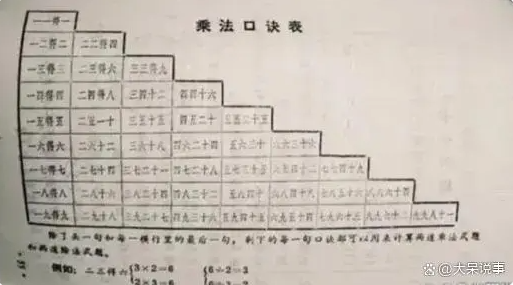 乘法口诀表
一一得一
一二得二 二二得四
一三得三 二三得六 三三得九
一四得四 二四得八 三四十二 四四十六
一五得五 二五一十 三五十五 四五二十 五五二十五
一六得六 二六十二 三六十八 四六二十四 五六三十 六六三十六
一七得七 二七十四 三七二十一 四七二十八 五七三十五 六七四十二 七七四十九
一八得八 二八十六 三八二十四 四八三十二 五八四十 六八四十八 七八五十六 八八六十四
一九得九 二九十八 三九二十七 四九三十六 五九四十五 六九五十四 七九六十三 八九七十二 九九八十一
除了头一句和每一横行里的最后一句，剩下的每一句口诀都可以用来计算两道乘法式题
和两道除法式题。
例如：二三得六 3×2=6 6÷2=3
2×3=6 6÷3=2
@大呆说事